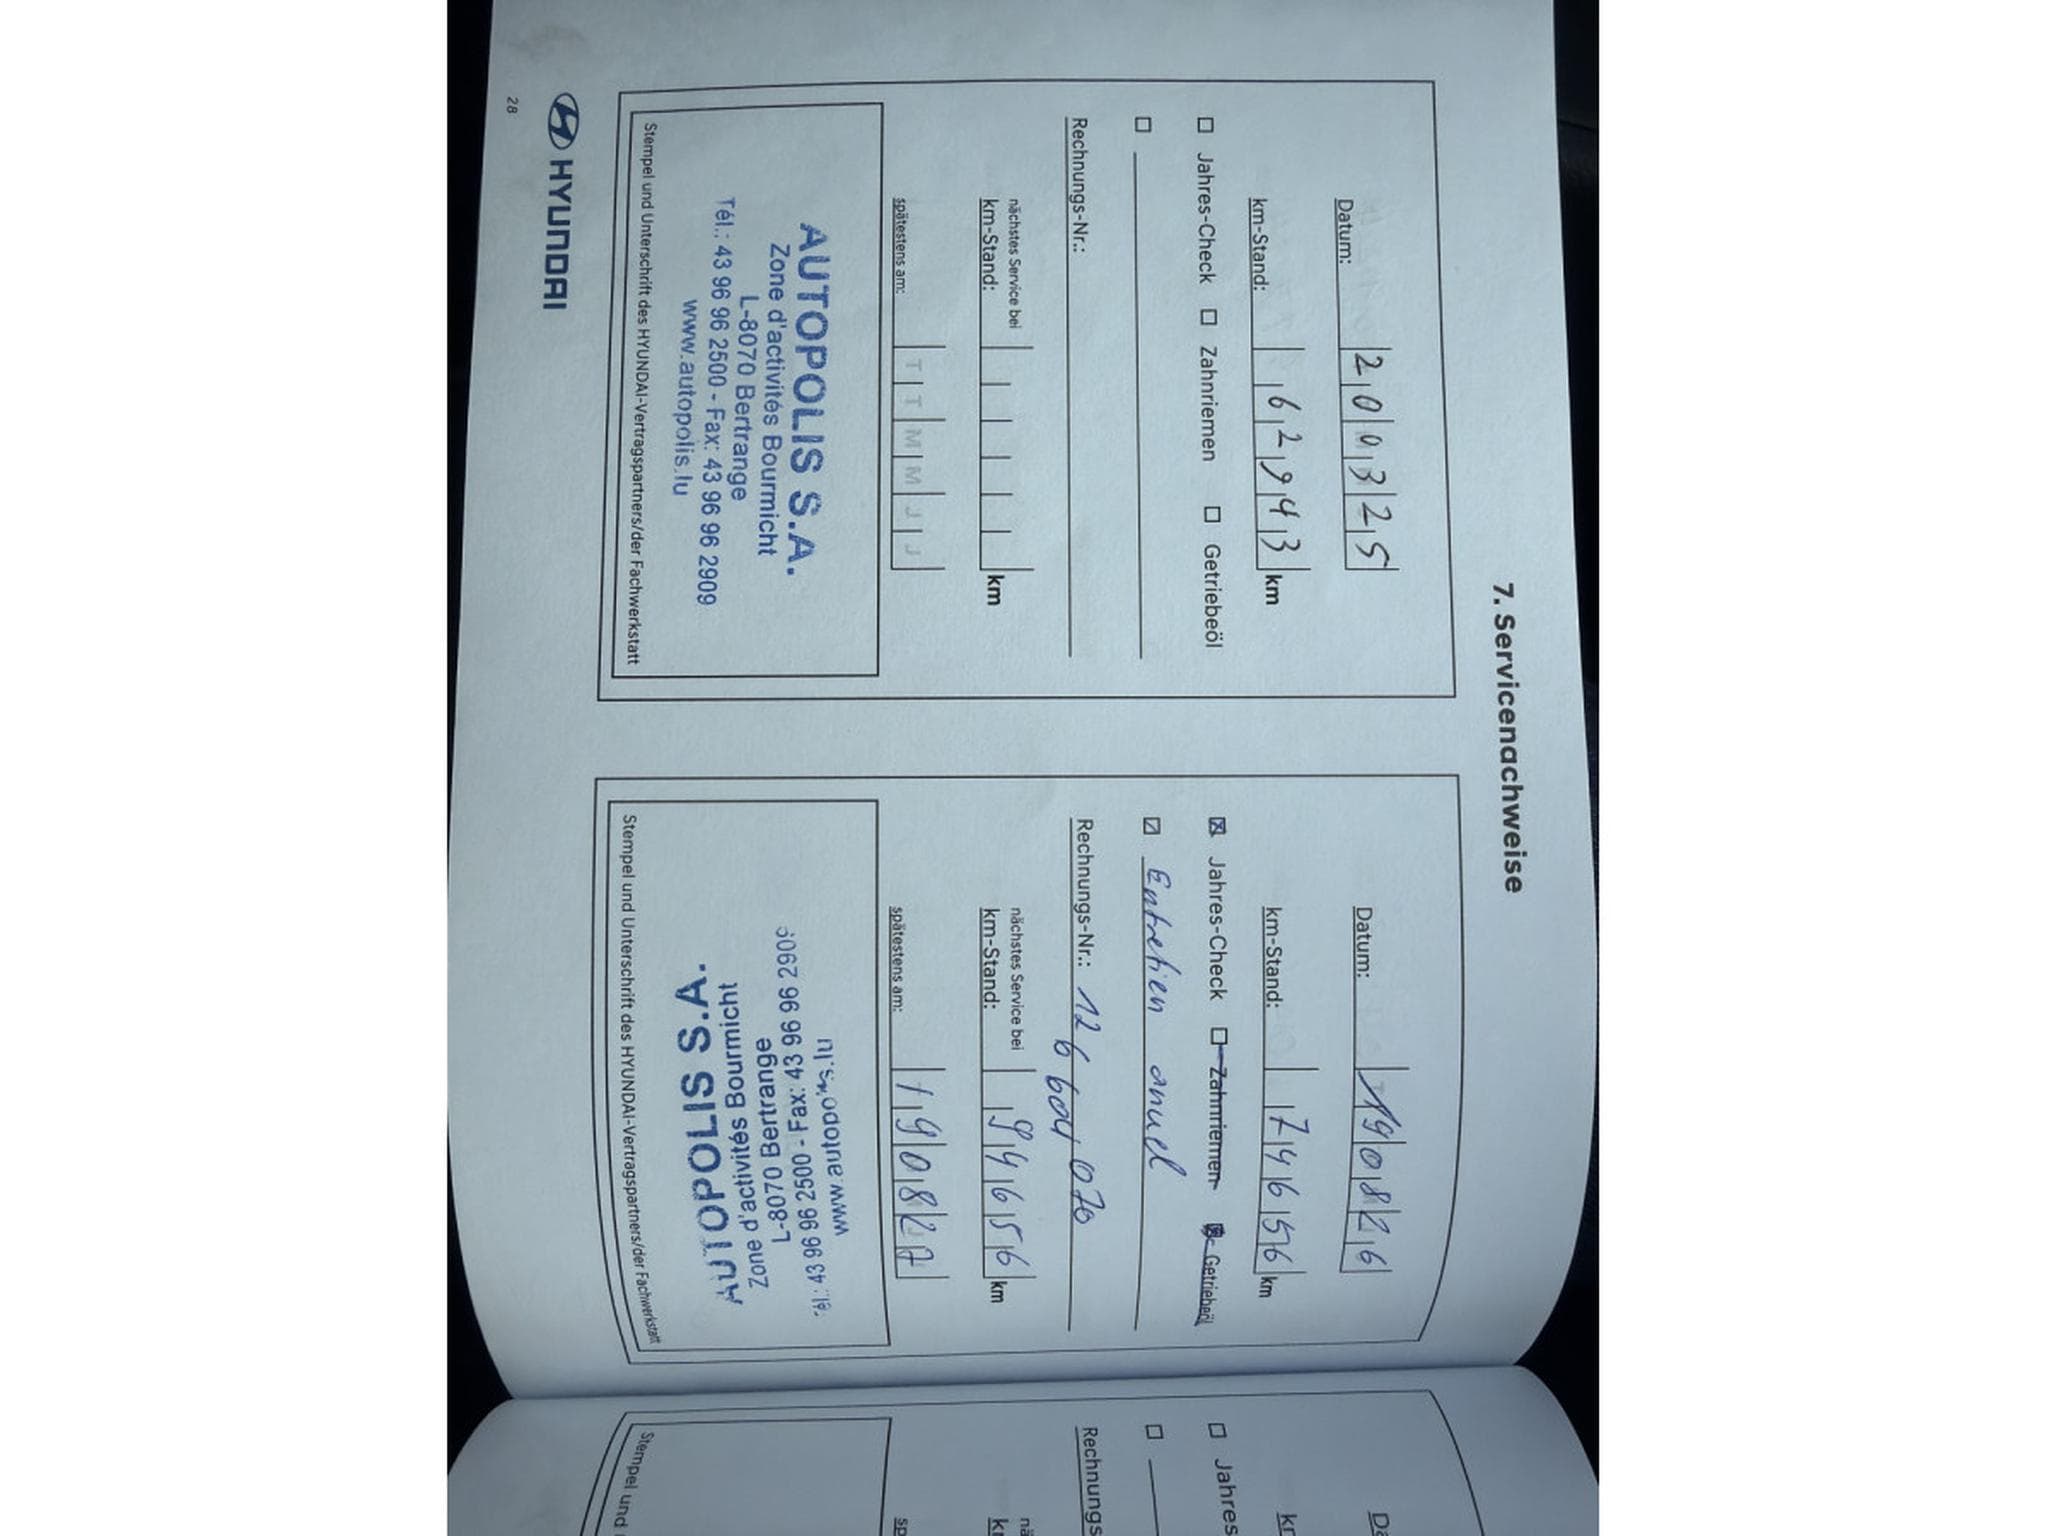 7. Servicenachweise
Datum: 200325
km-Stand: 62943 km
☐ Jahres-Check ☐ Zahnriemen ☐ Getriebeöl
☐
Rechnungs-Nr.:
nächstes Service bei
km-Stand: km
spätestens am: T T M M J J
AUTOPOLIS S.A.
Zone d'activités Bourmicht
L-8070 Bertrange
Tél.: 43 96 96 2500 - Fax: 43 96 96 2909
www.autopolis.lu
Stempel und Unterschrift des HYUNDAI-Vertragspartners/der Fachwerkstatt
HYUNDAI
28
Datum: 190826
km-Stand: 74656 km
☒ Jahres-Check ☐ Zahnriemen Getriebeöl
☑ Entretien anuel
Rechnungs-Nr.: 126604070
nächstes Service bei
km-Stand: 94656 km
spätestens am: 190827
AUTOPOLIS S.A.
Zone d'activités Bourmicht
L-8070 Bertrange
43 96 96 2500 - Fax: 43 96 96 290
Stempel und Unterschrift des HYUNDAI-Vertragspartners/der Fachwerkstatt
Da
☐ Jahres
☐
Rechnungs
Stempel und